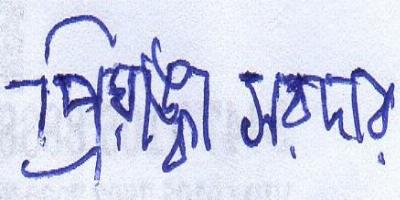 প্রিয়াঙ্কা সরদার